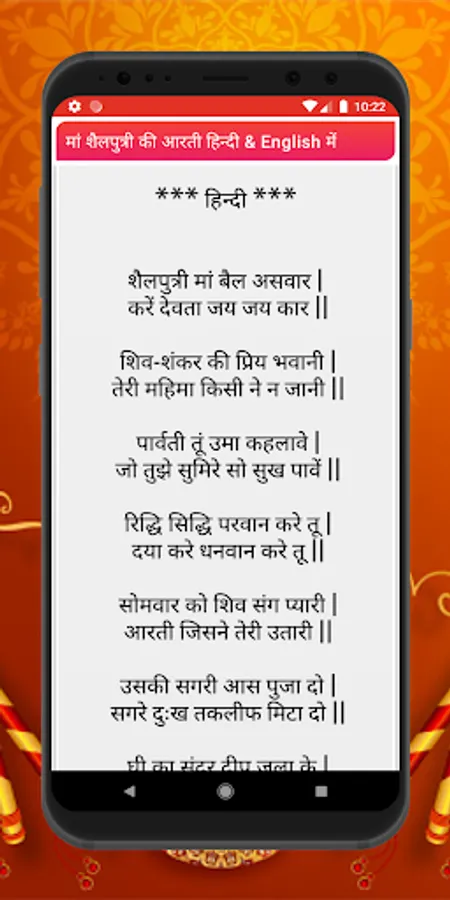 10:22
मां शैलपुत्री की आरती हिन्दी & English में
*** हिन्दी ***
शैलपुत्री मां बैल असवार |
करें देवता जय जय कार ||
शिव-शंकर की प्रिय भवानी |
तेरी महिमा किसी ने न जानी ||
पार्वती तूं उमा कहलावे |
जो तुझे सुमिरे सो सुख पावें ||
रिद्धि सिद्धि परवान करे तू |
दया करे धनवान करे तू ||
सोमवार को शिव संग प्यारी |
आरती जिसने तेरी उतारी ||
उसकी सगरी आस पुजा दो |
सगरे दुःख तकलीफ मिटा दो ||
घी का सुंदर दीप जला के |